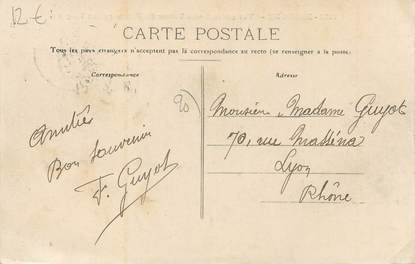 12 €
CARTE POSTALE
Tous les pays étrangers n'acceptent pas la correspondance au recto (se renseigner à la poste)
Correspondance
Adresse
90
Amitiés
Bon souvenir
F. Guyot
Monsieur, Madame Guyot
70, rue Masséna
Lyon
Rhône